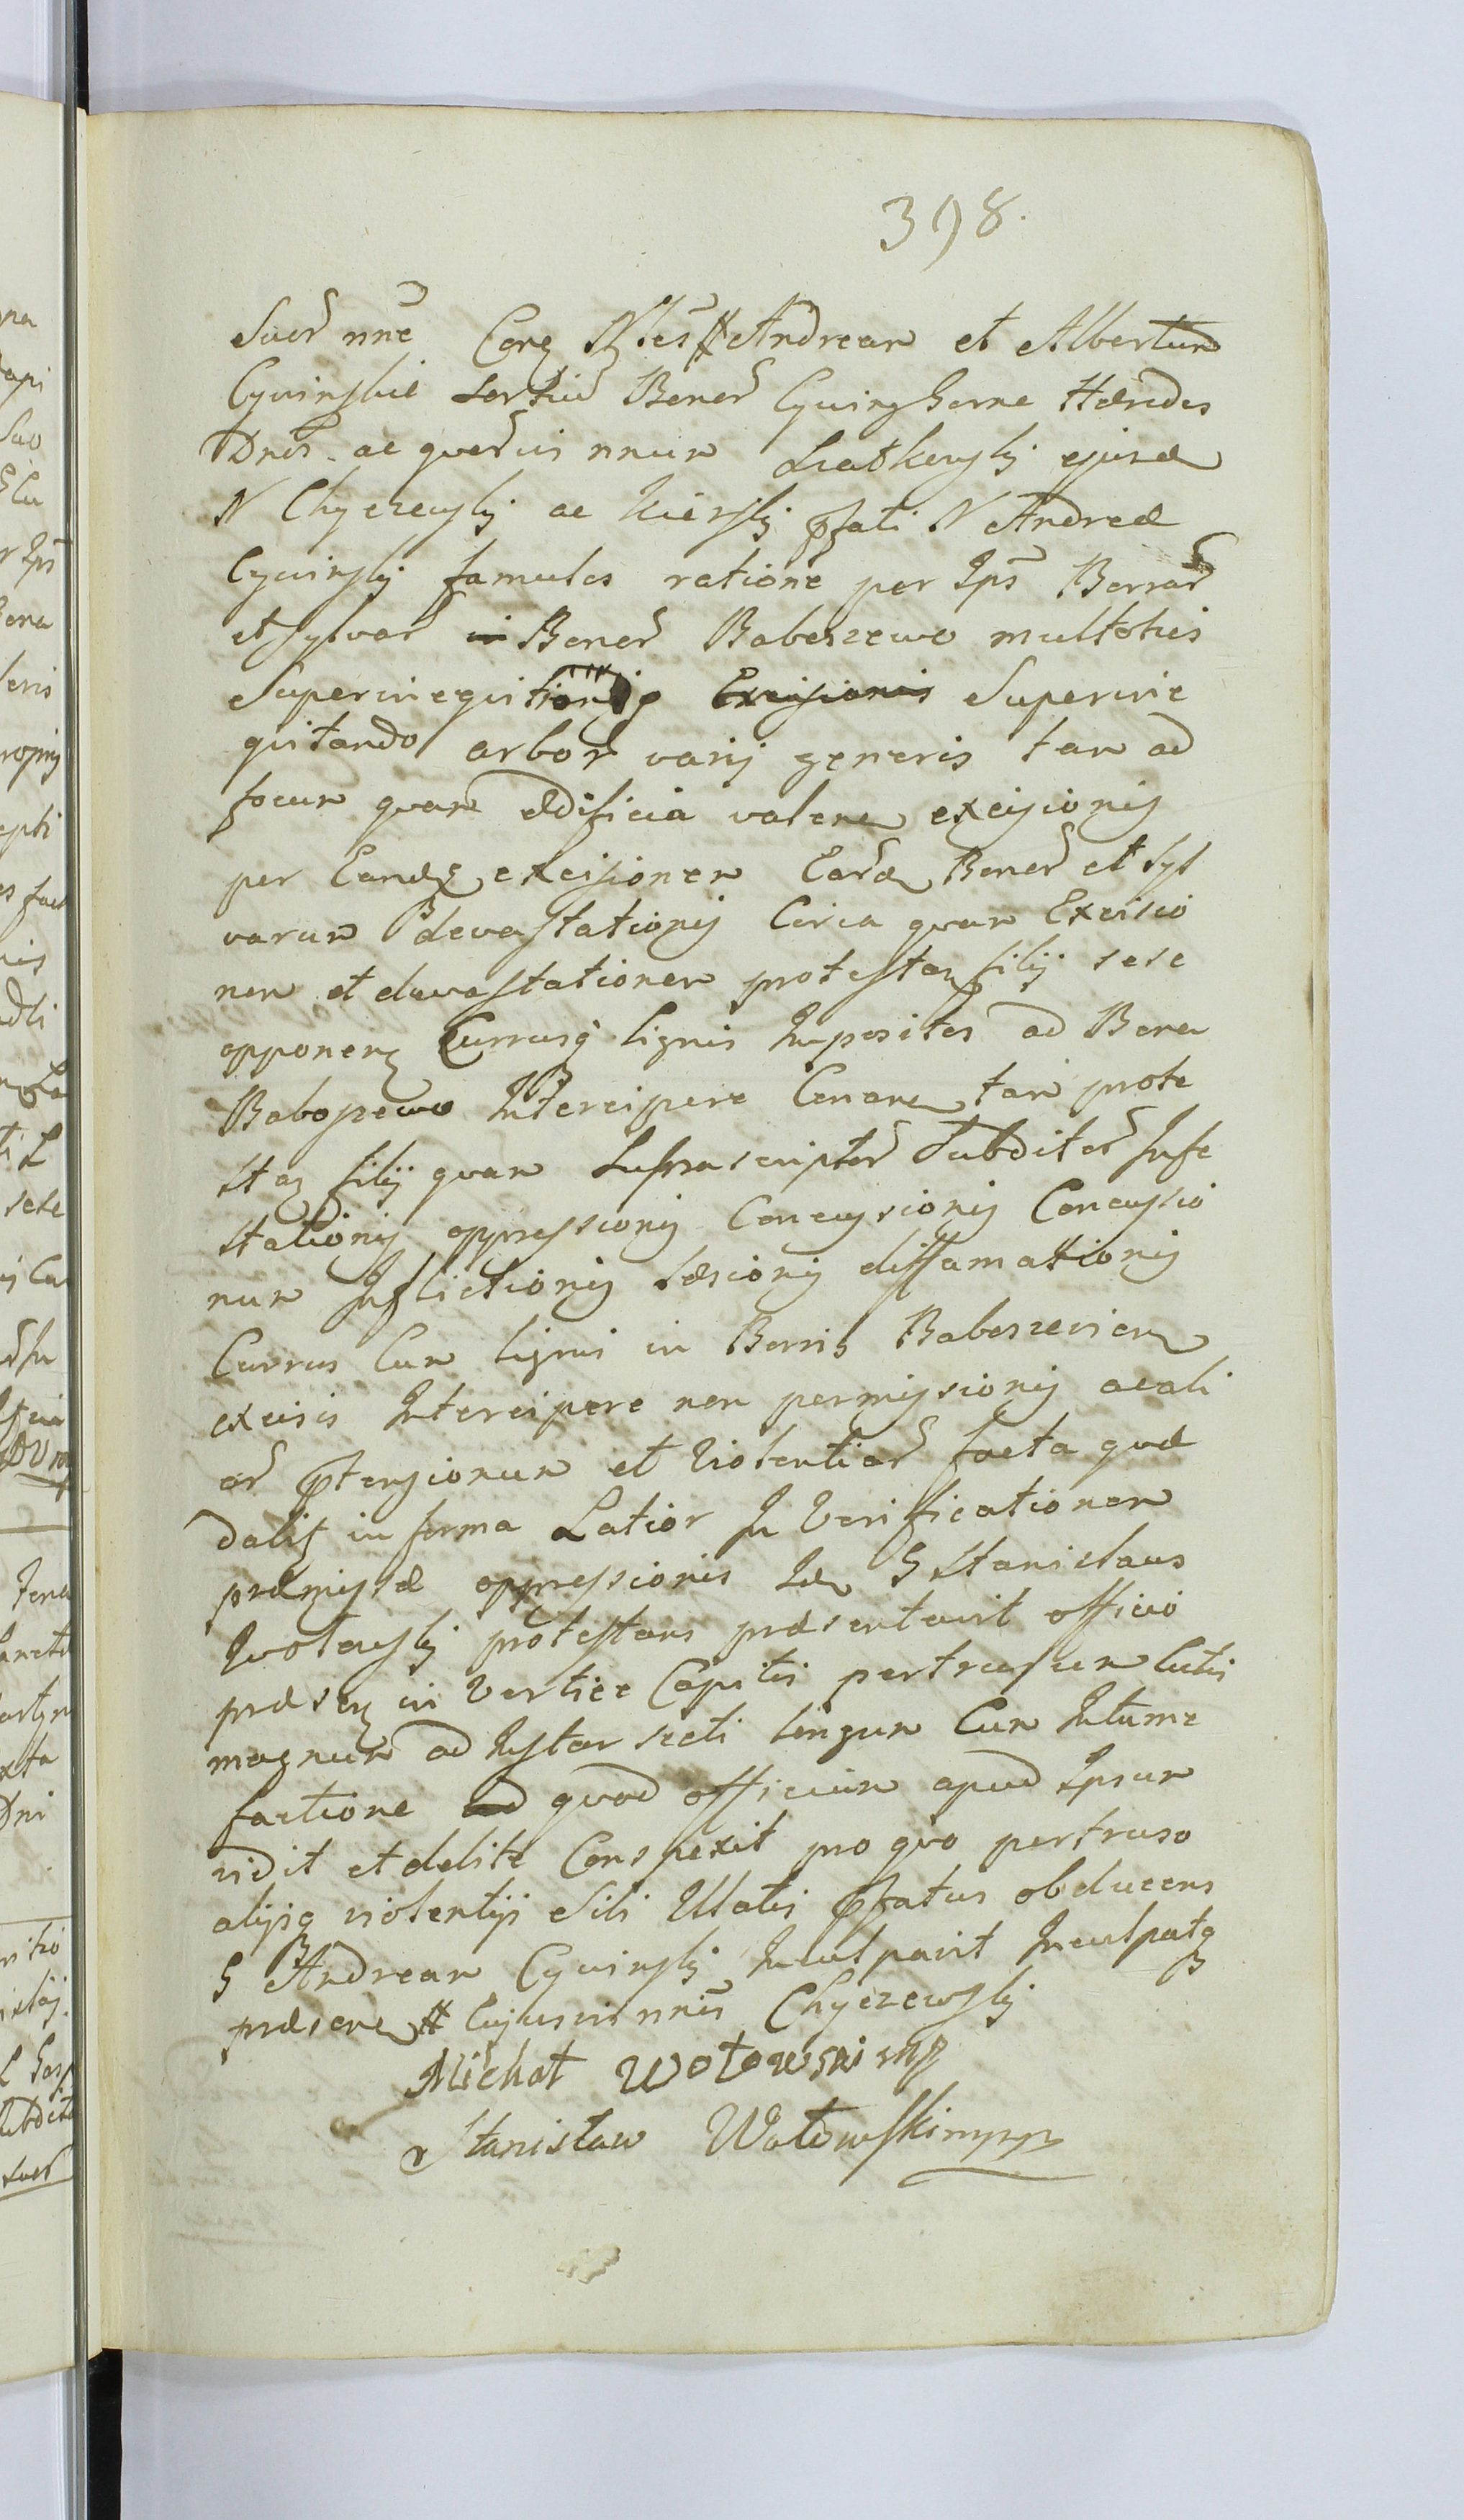 398.
Suor nne Conz Nles Andream et Albertum
Cywinskie Sortiu Bonor Cywing Sorne Hæredes
Dnos. ac quosvis nnum Liatkowskj ejusd
N Chyczewskj ac Kierskj pfati N Andreæ
Cywinskj famulos ratione per Ips Borrar
et Sylvar in Bonor Baboszewo multoties
Superinequitionis Excisionis Superine
quitando arbor varij generis tam ad
focum quam ædificia valen excisionis
per Eandq excisionem Eard Bonor et Syl
varum devastationis Circa quam Excisio
nem et devastationem protestan filij sese
opponen Currusq lignis Impositos ad Bona
Baboszewo Intercipere Conan tam prote
stan filij quam Suprascriptor Subditor Infe
stationis oppressionis Concussionis Concussio
num Inflictionis Læsionis diffamationis
Currus Cum lignis in Borris Baboszevien
excisis Intercipere non permissionis acali
ar ptensionum et Violentiar facta quæ
dalis in forma Latior In Verificationem
præmissæ oppressionis Id G Stanislaus
Wolowskj protestans præsentavit officio
præsen in Vertice Capitis pertrusum Cutis
magnum ad Instar secti longum Cum Intume
factione quod officium apud Ipsum
vidit et debite Conspexit pro quo pertruso
alijsq violentijs Sibi Illatis pfatus obducens
G Andream Cywinskj Inculpavit Inculpatq
præsen Cujusvis nnis Chyczewskj
Michał Wołowski mp
Stanisław Wołowski mpp